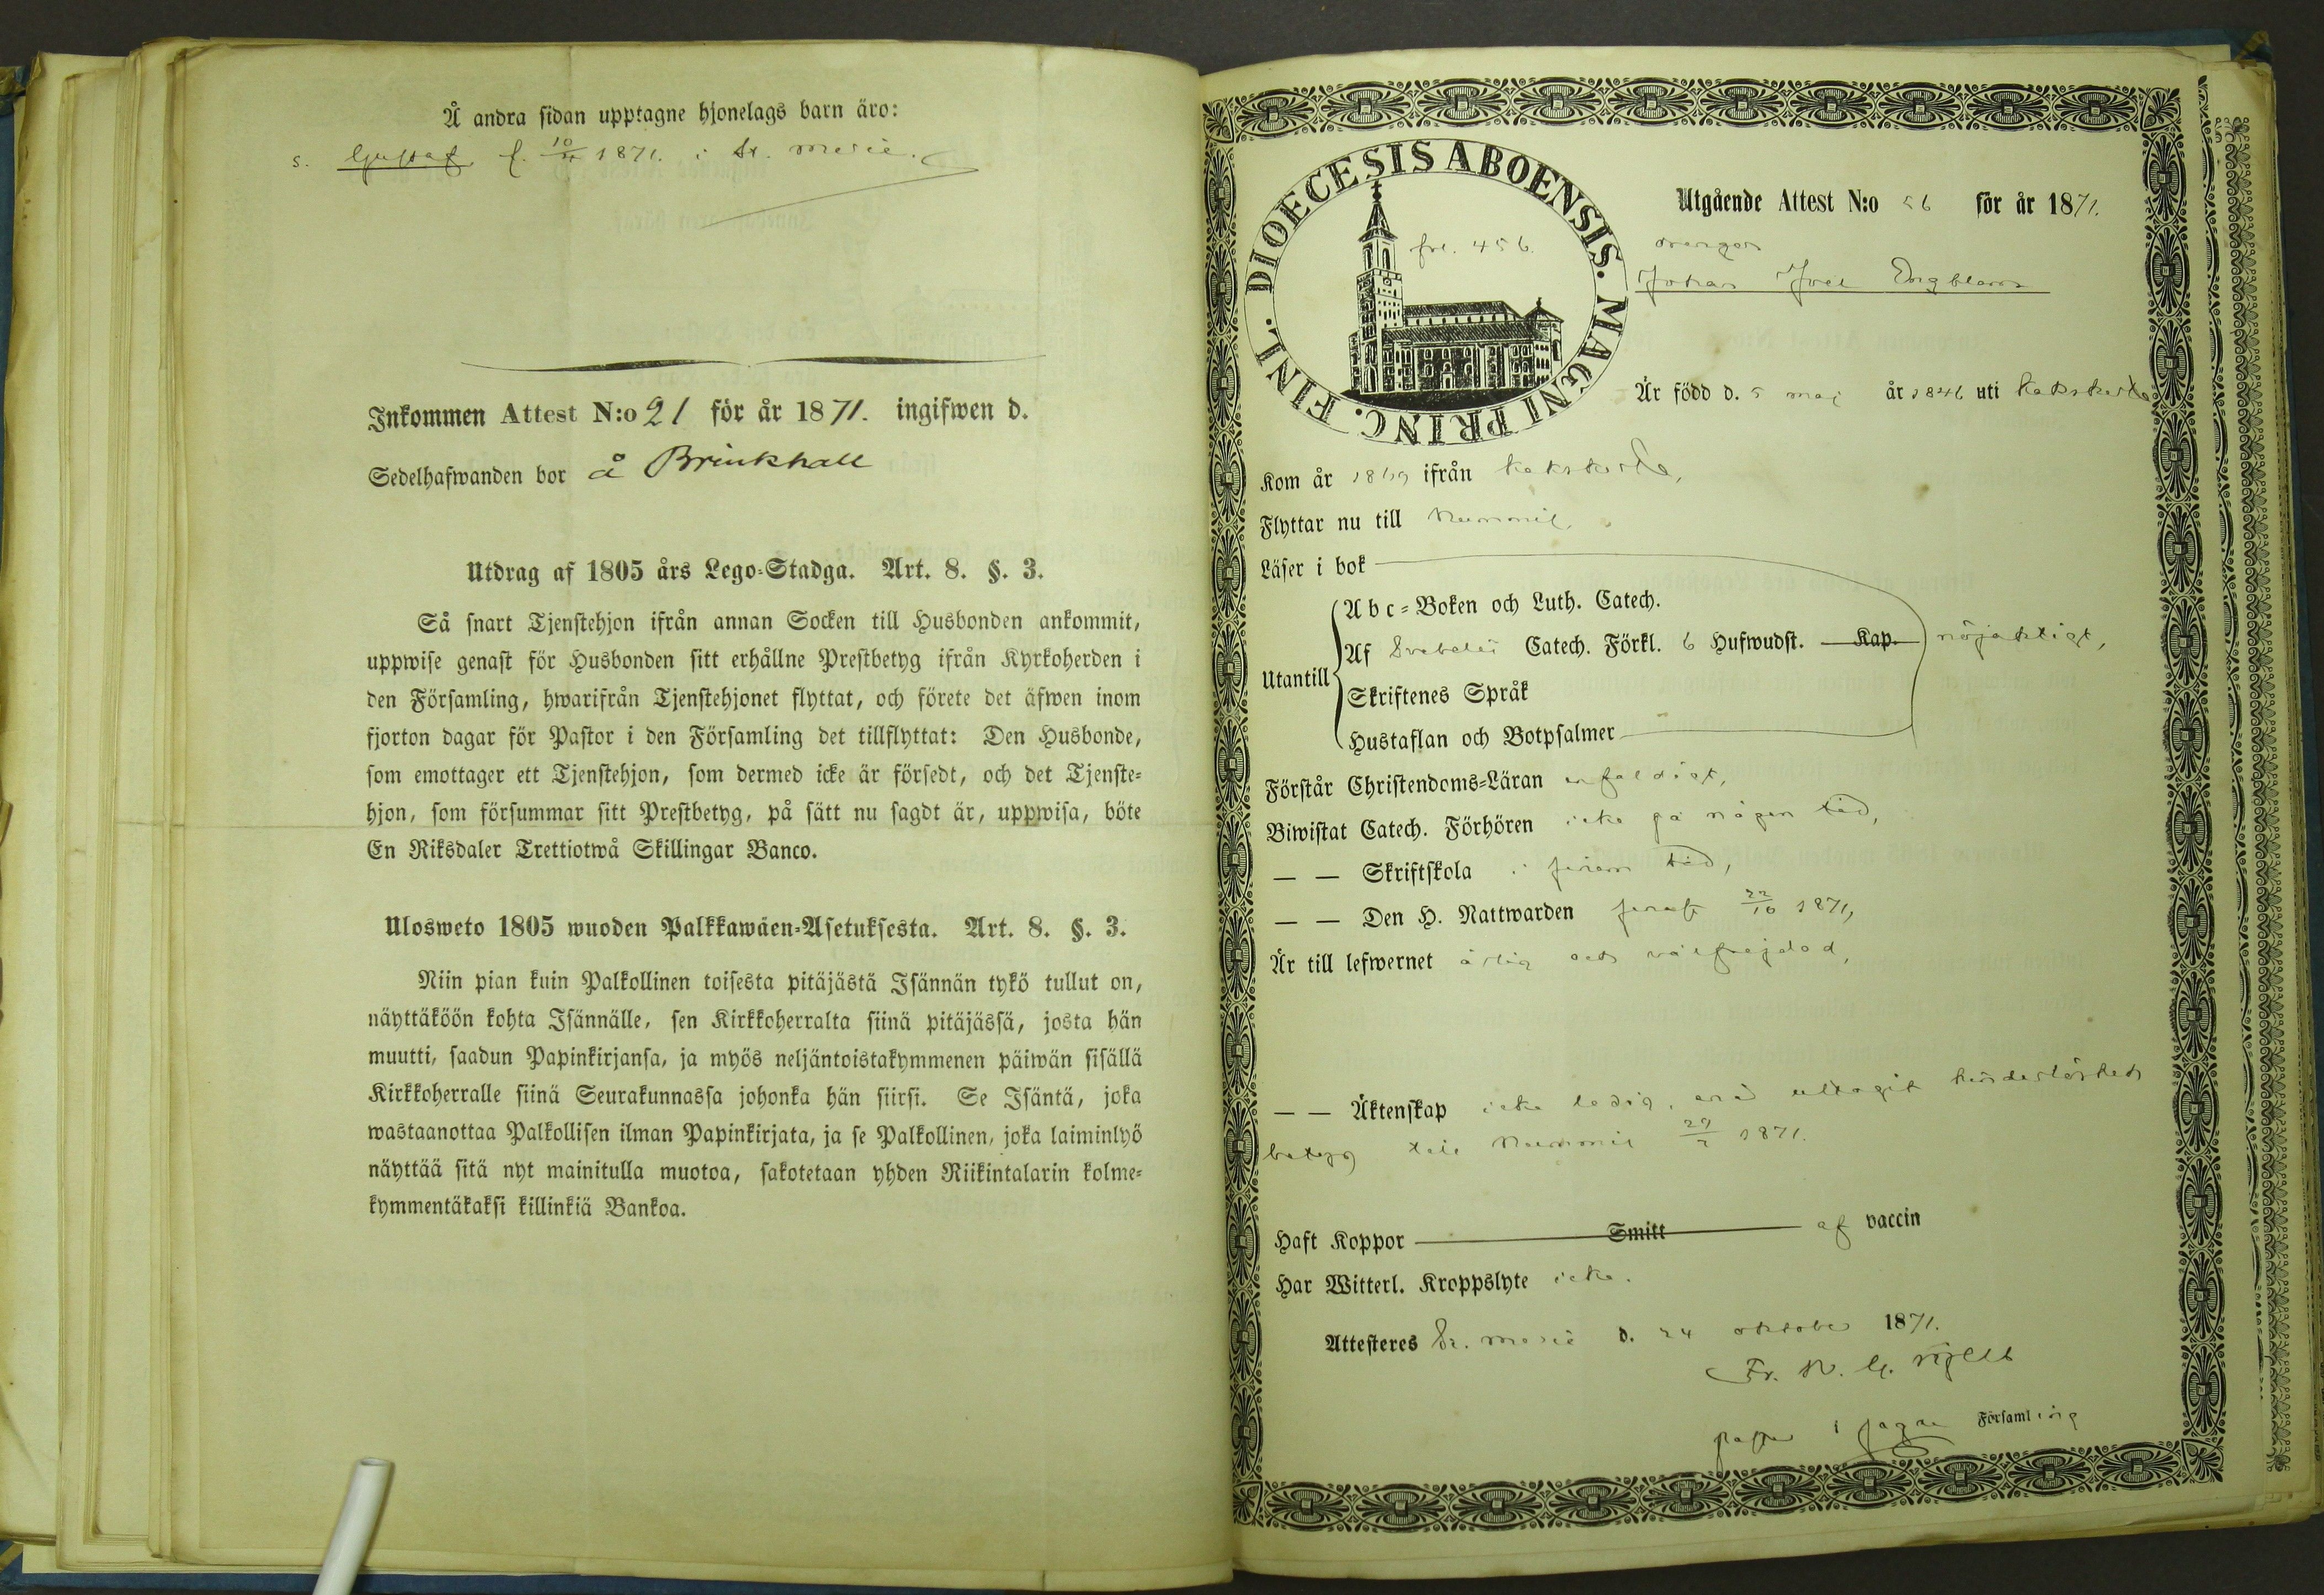 Å andra sidan upptagne hjonelags barn äro:
s. Gustaf f. 10/4 1871. i St. Marie.
Inkommen Attest N:o 21 för år 1871. ingifwen d.
Sedelhafwanden bor å Brinkhall
Utdrag af 1805 års Lego-Stadga. Art. 8. §. 3.
Så snart Tjenstehjon ifrån annan Socken till Husbonden ankommit,
uppwise genast för Husbonden sitt erhållne Prestbetyg ifrån Kyrkoherden i
den Församling, hwarifrån Tjenstehjonet flyttat, och förete det äfwen inom
fjorton dagar för Pastor i den Församling det tillflyttat: Den Husbonde,
som emottager ett Tjenstehjon, som dermed icke är försedt, och det Tjenste-
hjon, som försummar sitt Prestbetyg, på sätt nu sagdt är, uppwisa, böte
En Riksdaler Trettiotwå Skillingar Banco.
Ulosweto 1805 wuoden Palkkawäen-Asetuksesta. Art. 8. §. 3.
Niin pian kuin Palkollinen toisesta pitäjästä Isännän tykö tullut on,
näyttäköön kohta Isännälle, sen Kirkkoherralta siinä pitäjässä, josta hän
muutti, saadun Papinkirjansa, ja myös neljäntoistakymmenen päiwän sisällä
Kirkkoherralle siinä Seurakunnassa johonka hän siirsi. Se Isäntä, joka
wastaanottaa Palkollisen ilman Papinkirjata, ja se Palkollinen, joka laiminlyö
näyttää sitä nyt mainitulla muotoa, sakotetaan yhden Riikintalarin kolme-
kymmentäkaksi killinkiä Bankoa.
DIOECESIS ABOENSIS. MAGNI PRINC. FINL.
fol. 456.
Utgående Attest N:o 56 för år 1871.
drengen
Johan Joel Engblom
Är född d. 5 maj år 1846 uti Kakskerta
Kom år 1869 ifrån Kakskerta,
Flyttar nu till Nummis,
Läser i bok
Abc-Boken och Luth. Catech.
Utantill Af Svebelii Catech. Förkl. 6 Hufwudst. Kap. nöjaktigt,
Skriftenes Språk
Hustaflan och Botpsalmer
Förstår Christendoms-Läran enfaldigt,
Biwistat Catech. Förhören icke på någon tid,
— — Skriftskola i sinom tid,
— — Den H. Nattwarden senast 22/10 1871,
Är till lefwernet ärlig och välfrejdad,
— — Äktenskap icke ledig, enär uttagit hinderlöshets
betyg till Nummis 29/7 1871.
Haft Koppor Smitt af vaccin
Har Witterl. Kroppslyte icke.
Attesteres St. Marie d. 24 oktober 1871.
Fr. W. G.
pastor i sagde Församling